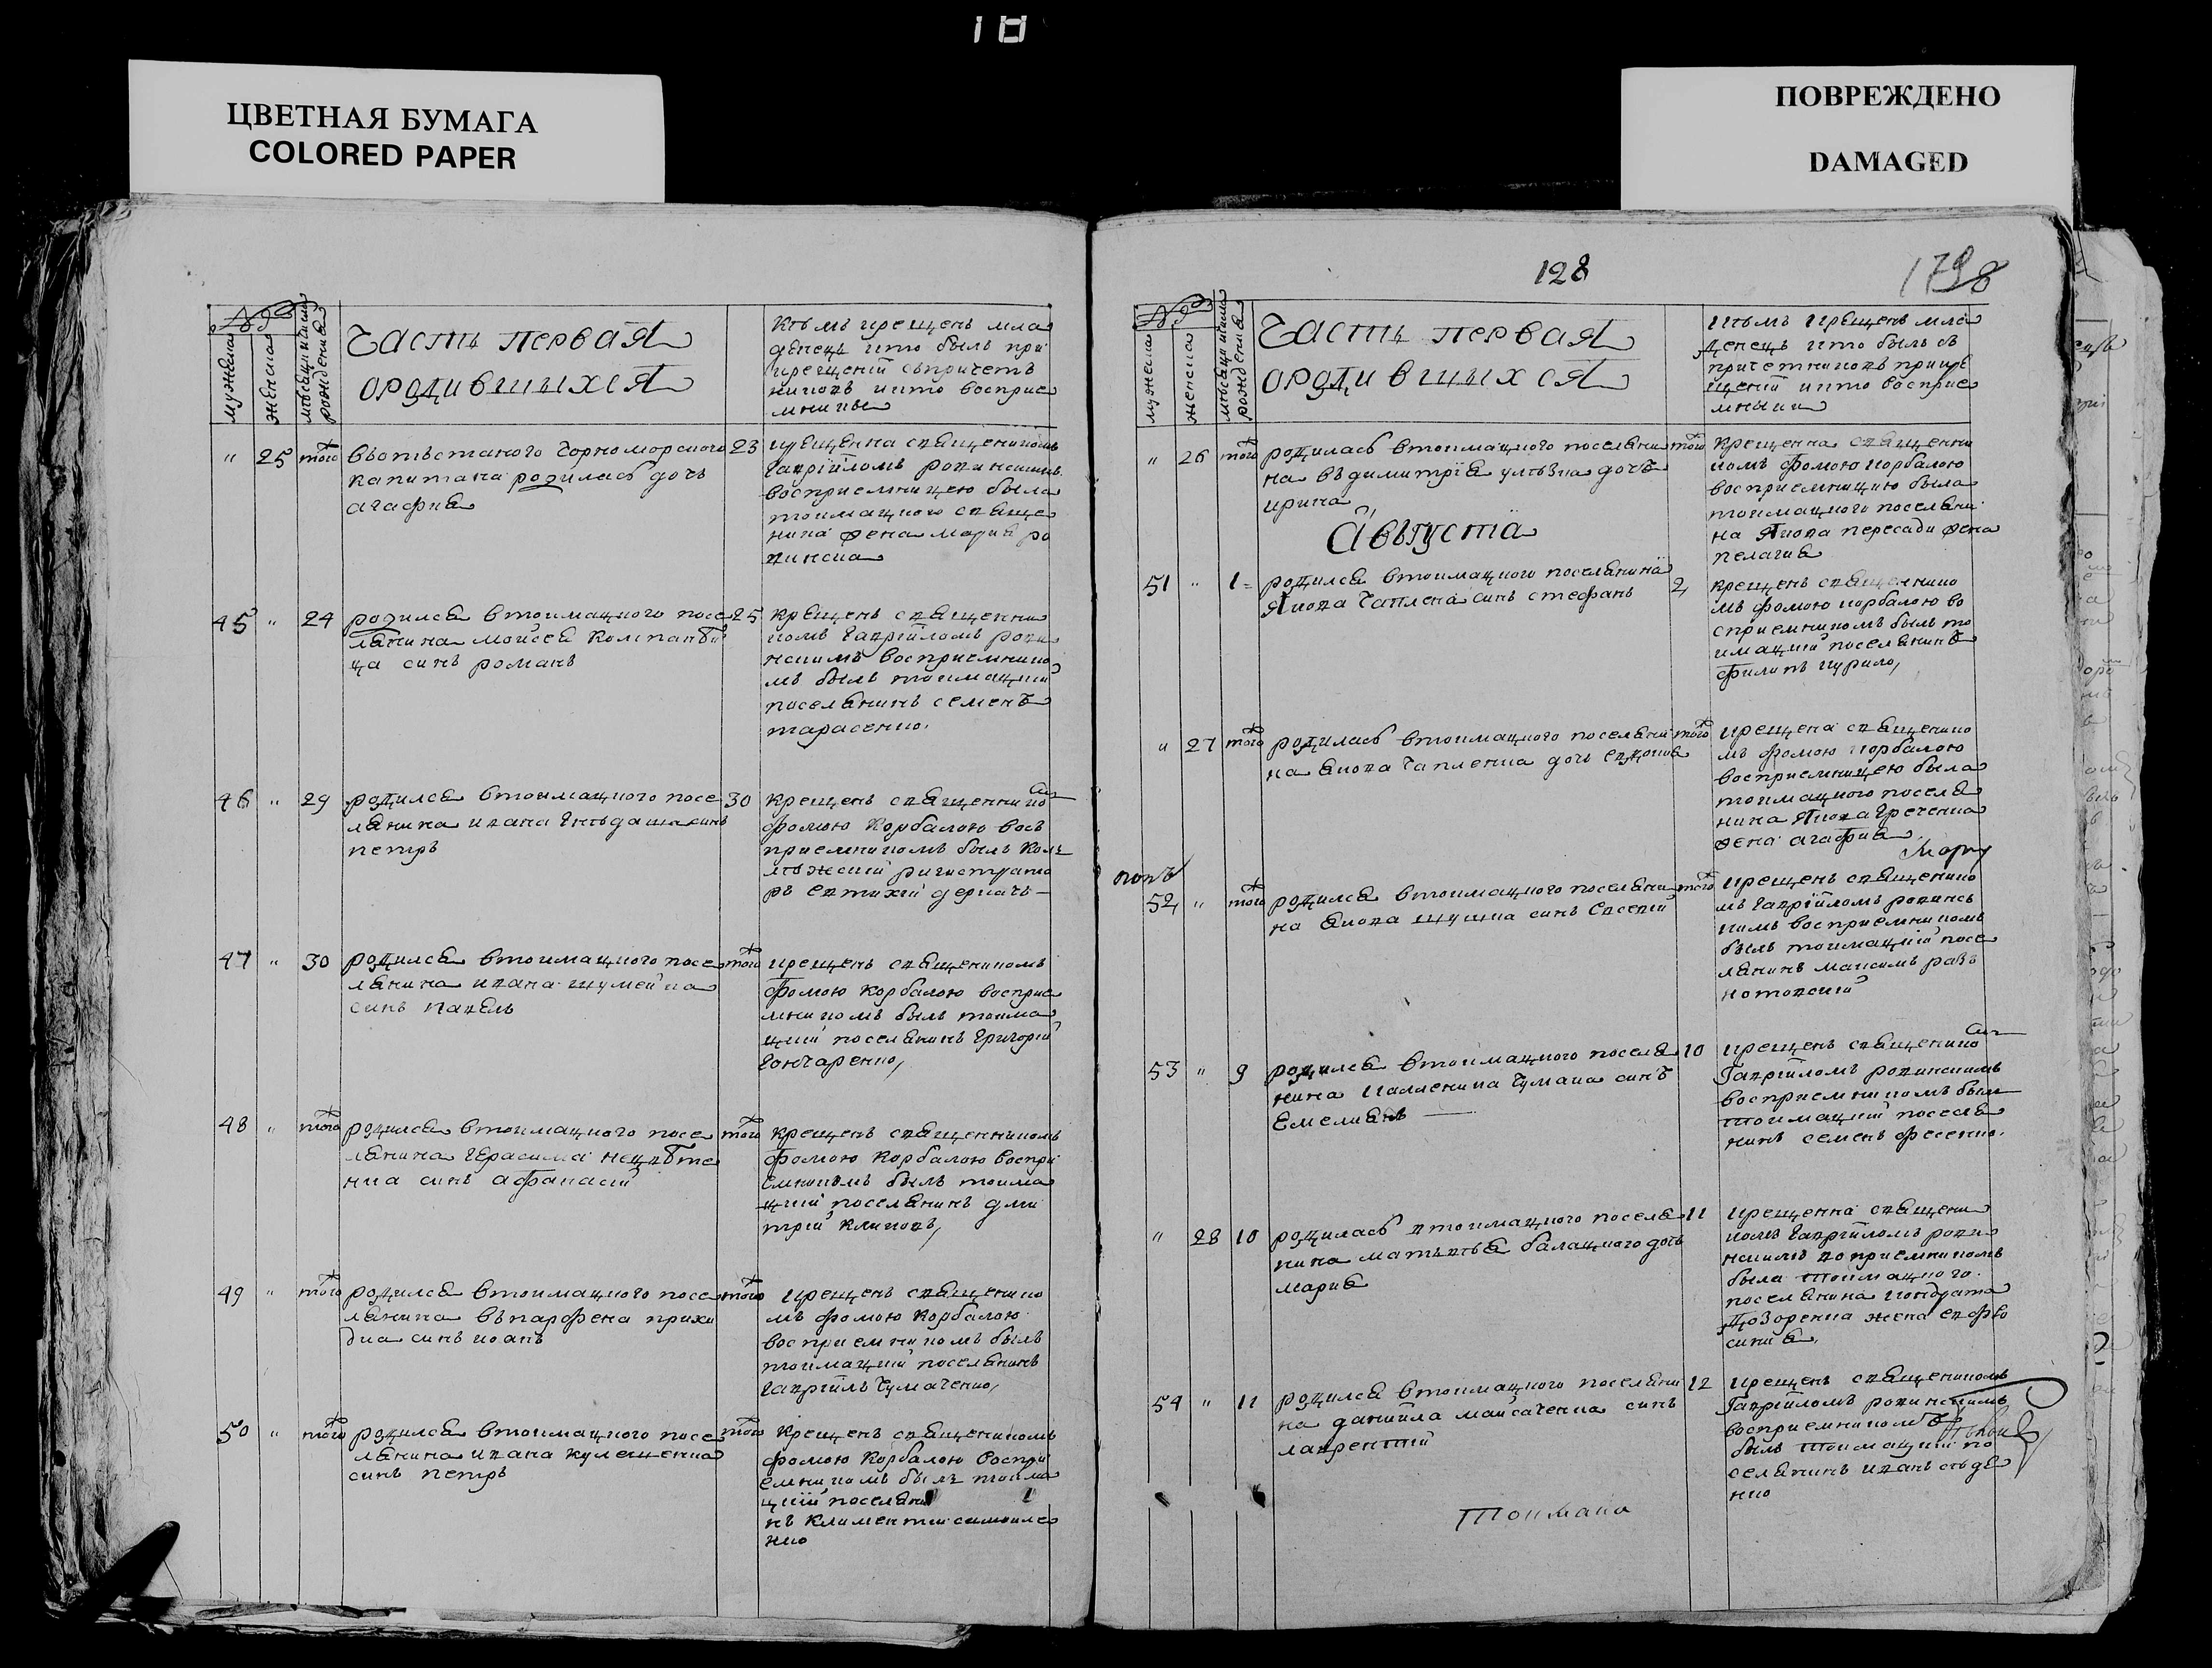 18
ЦВЕТНАЯ БУМАГА
COLORED PAPER
ПОВРЕЖДЕНО
DAMAGED
№
мужеска
женска
рождения
Часть первая
ородившихся
кѣмъ крещенъ мла
денецъ кто былъ при
крещеній съпричет
никовъ икто восприе
мники
" 25 того
Черноморского
капитана родилась дочъ
агафиа
23
крещенна священикомъ
гавріиломъ
восприемницею была
тоимацкого священ
ника жена мариа
45 " 24
родился втоимацкого посе
лянина мойсея
ца синъ романъ
25
крещенъ священни
комъ гавріиломъ
восприемнико
мъ былъ тоимацкий
поселянинъ семенъ
тарасенко.
46 " 29
родился втоимацкого посе
лянина ивана синъ
петръ
30
крещенъ священнико
фомою корбалою вос
приемникомъ былъ кол
лѣжский ригистрато
ръ евтихий деркачъ
47 " 30
родился втоимацкого посе
лянина ивана шумейка
синъ павелъ
того
крещенъ священикомъ
фомою корбалою восприе
мникомъ былъ тоима
цкий поселянинъ григорий
гончаренко,
48 " того
родился втоимацкого посе
лянина герасима
нка синъ афанасий
того
крещенъ священникомъ
фомою корбалою воспри
емникомъ былъ тоима
цкий поселянинъ дми
трий климовъ,
49 " того
родился втоимацкого посе
лянина въпарфена прихо
дка синъ иоанъ
того
крещенъ священико
мъ фомою корбалою
восприемникомъ былъ
тоимацкий поселянинъ
гавріилъ чумаченко,
50 " того
родился втоимацкого посе
лянина ивана кулешенка
синъ петръ
того
крещенъ священикомъ
фомою корбалою воспри
емникомъ былъ тоима
цкий поселяни
нъ климентий самойле
нко
128
1798
№
мужеска
женска
рождения
Часть первая
ородившихся
кѣмъ крещенъ мла
денецъ кто былъ съ
причетниковъ прикре
щений икто восприе
мники
" 26 того
родилась втоимацкого поселяни
на въдимитріа дочъ
ирина
того
крещенна священни
комъ фомою корбалою
восприемницию была
тоимацкого поселяни
на якова жена
пелагиа
Августа
51 " 1
родился втоимацкого поселянина
Якова Чапленка синъ стефанъ
2
крещенъ священнико
мъ фомою корбалою во
сприемникомъ былъ то
имацкий поселянинъ
филипъ курило,
" 27 того
родилась втоимацкого поселяни
на якова чапленка дочъ
того
крещена священико
мъ фомою корбалою
восприемницею была
тоимацкого поселя
нина якова гречанка
жена агафиа
52 " того
родился втоимацкого поселяни
на якова шушка синъ
того
крещенъ священико
мъ гавріиломъ
восприемникомъ
былъ тоимацкий посе
лянинъ максимъ
53 " 9
родился втоимацкого поселя
нина чумака синъ
емелианъ
10
крещенъ священико
гавріиломъ
восприемникомъ былъ
тоимацкий поселя
нинъ семенъ фесенко.
" 28 10
родилась втоимацкого поселя
нина матвѣя балацкого дочъ
мариа
11
крещенна священи
комъ гавріиломъ
воприемникомъ
была тоимацкого
поселянина кондрата
жена евфро
синиа,
54 " 11
родился втоимацкого поселяни
на даниила майсаченка синъ
лаврентий
12
крещенъ священикомъ
гавріиломъ
восприемникомъ
былъ тоимацкий по
селянинъ иванъ
нко